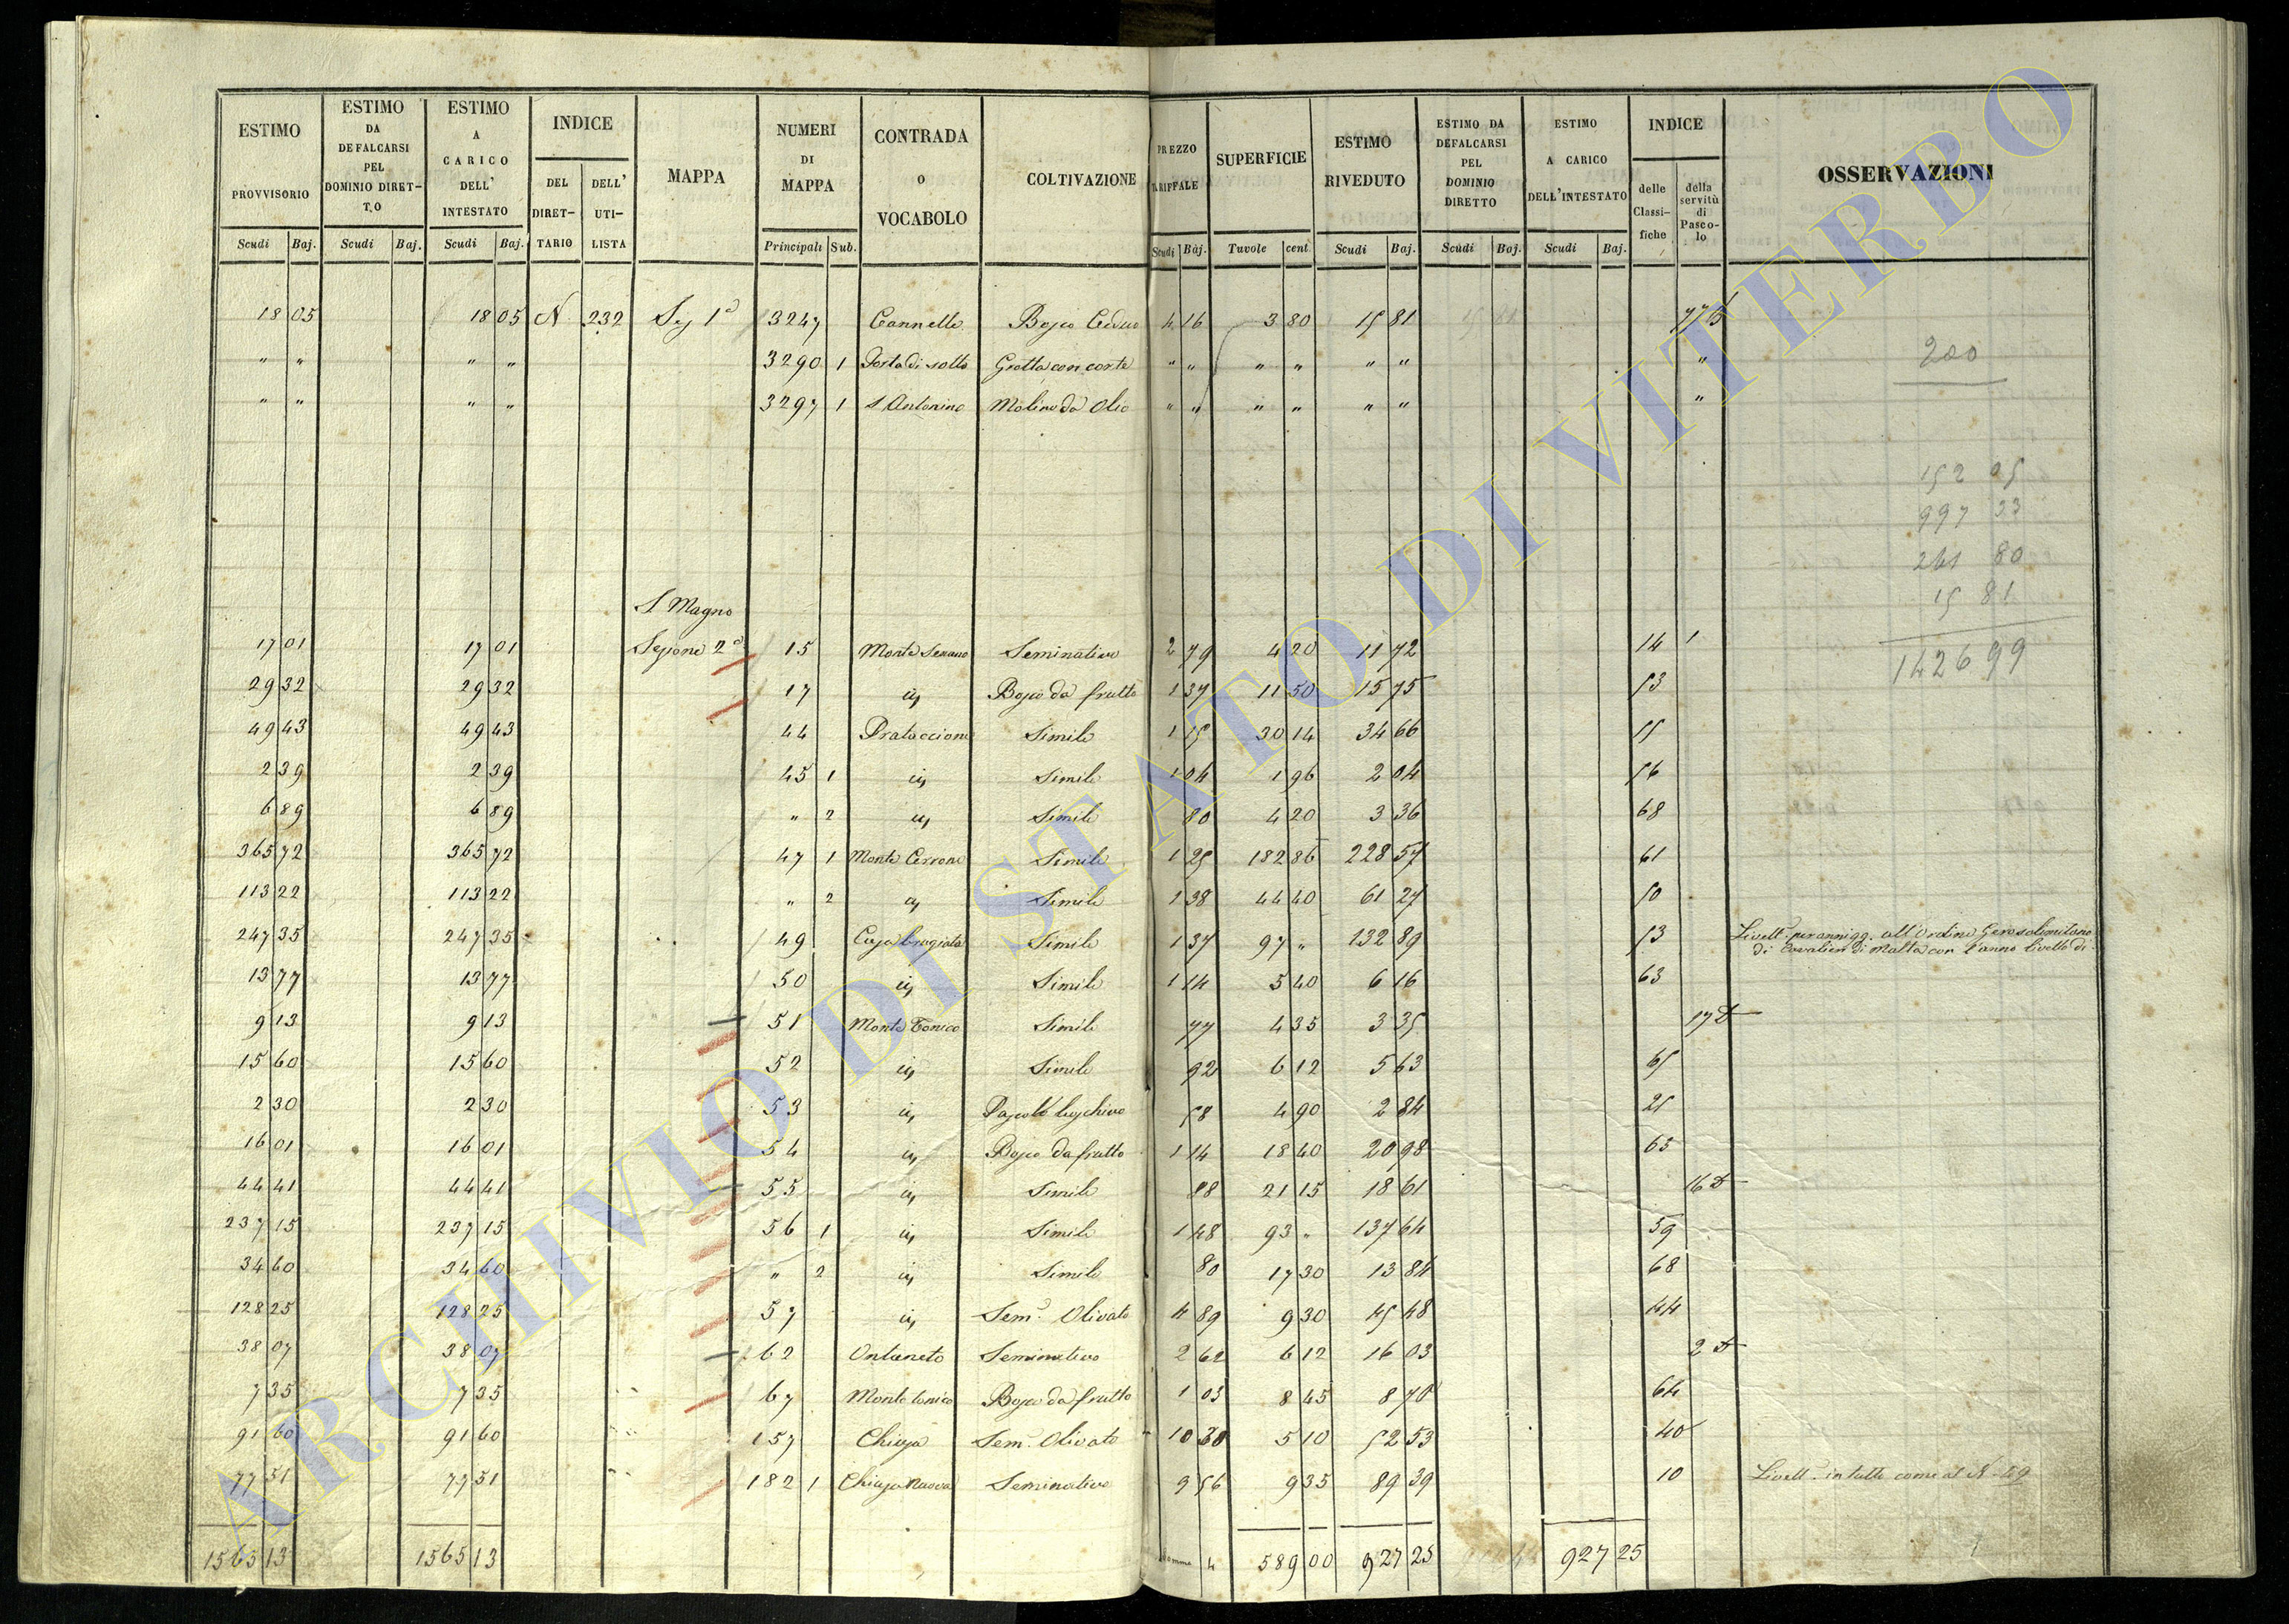 ESTIMO PROVVISORIO Scudi Baj. | ESTIMO DA DEFALCARSI PEL DOMINIO DIRETTO Scudi Baj. | ESTIMO A CARICO DELL' INTESTATO Scudi Baj. | INDICE DEL DIRETTARIO DELL' UTILISTA | MAPPA | NUMERI DI MAPPA Principali Sub. | CONTRADA O VOCABOLO | COLTIVAZIONE | PREZZO TARIFFALE Scudi Baj. | SUPERFICIE Tavole cent | ESTIMO RIVEDUTO Scudi Baj. | ESTIMO DA DEFALCARSI PEL DOMINIO DIRETTO Scudi Baj. | ESTIMO A CARICO DELL'INTESTATO Scudi Baj. | INDICE delle Classifiche della servitù di Pascolo | OSSERVAZIONI
18 05 18 05 N 232 Sez 1a 3247 Cannelle Bosco Ceduo 4 16 3 80 15 81 77 b
" " " " 3290 1 Porta di sotto Grotta con corte " " " " " " " 200
" " " " 3297 1 S Antonino Molino da Olio " " " " " " "
152 05
997 33
261 80
15 81
1426 99
S. Magno
17 01 17 01 Sezione 2a 15 Monte Senano Seminativo 2 79 4 20 11 72 14 1
29 32 29 32 17 id Bosco da frutto 1 37 11 50 15 75 53
49 43 49 43 44 Prataccione Simile 1 15 30 14 34 66 55
2 39 2 39 45 1 id Simile 1 04 1 96 2 04 56
6 89 6 89 " 2 id Simile 80 4 20 3 36 68
365 72 365 72 47 1 Monte Cerrone Simile 1 25 182 86 228 57 61
113 22 113 22 " 2 id Simile 1 38 44 40 61 27 50
247 35 247 35 49 Casa bragiata Simile 1 37 97 " 132 89 53 Livell. per anni 99. all'Ordine Gerosolimitano
di Cavalieri di Malta con l'annuo livello di
13 77 13 77 50 id Simile 1 14 5 40 6 16 63
9 13 9 13 51 Monte Tonico Simile 77 4 35 3 35 17 D
15 60 15 60 52 id Simile 92 6 12 5 63 65
2 30 2 30 53 id Pascolo Ceschivo 58 4 90 2 84 25
16 01 16 01 54 id Bosco da frutto 1 14 18 40 20 98 63
44 41 44 41 55 id Simile 88 21 15 18 61 16 D
237 15 237 15 56 1 id Simile 1 48 93 " 137 64 59
34 60 34 60 " 2 id Simile 80 17 30 13 84 68
128 25 128 25 57 id Sem. Olivato 4 89 9 30 45 48 44
38 07 38 07 62 Ontaneto Seminativo 2 62 6 12 16 03 2 D
7 35 7 35 67 Monte tonico Bosco da frutto 1 03 8 45 8 70 64
91 60 91 60 157 Chiusa Sem. Olivato 10 30 5 10 52 53 40
77 51 77 51 182 1 Chiusa Nuova Seminativo 9 56 9 35 89 39 10 Livell. in tutto come al N. 49
1565 13 1565 13 Somma 4 589 00 927 25 927 25
ARCHIVIO DI STATO DI VITERBO